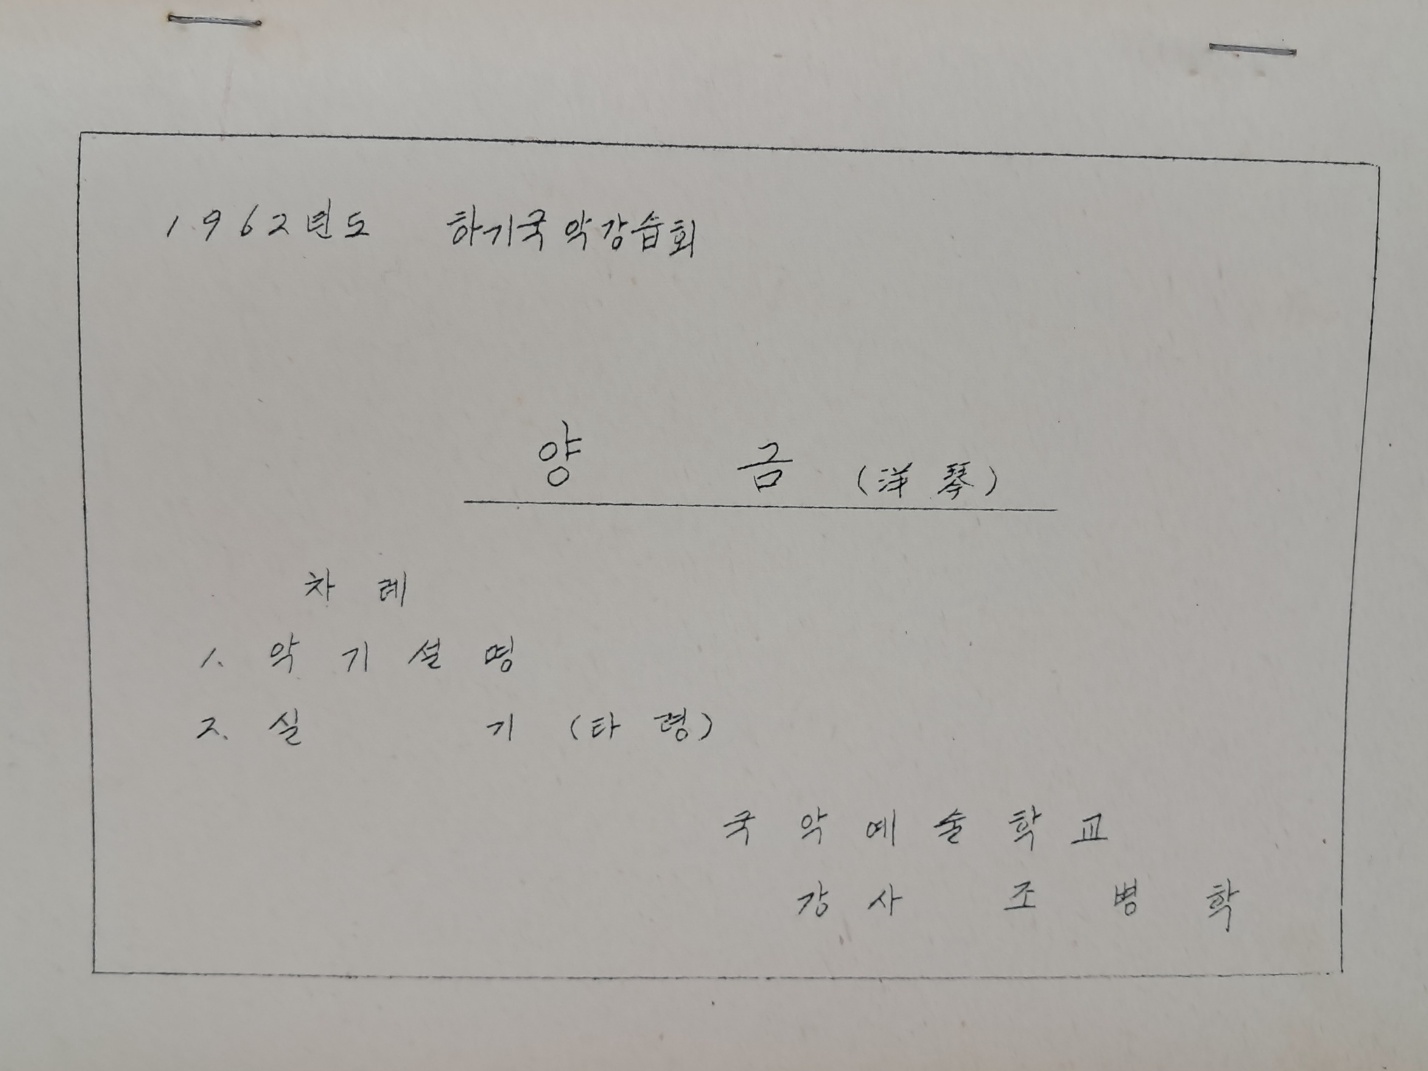 1962년도 하기국악강습회
양 금 (洋琴)
차 례
1. 악 기 설 명
2. 실 기 (타 령)
국 악 예 술 학 교
강 사 조 병 학